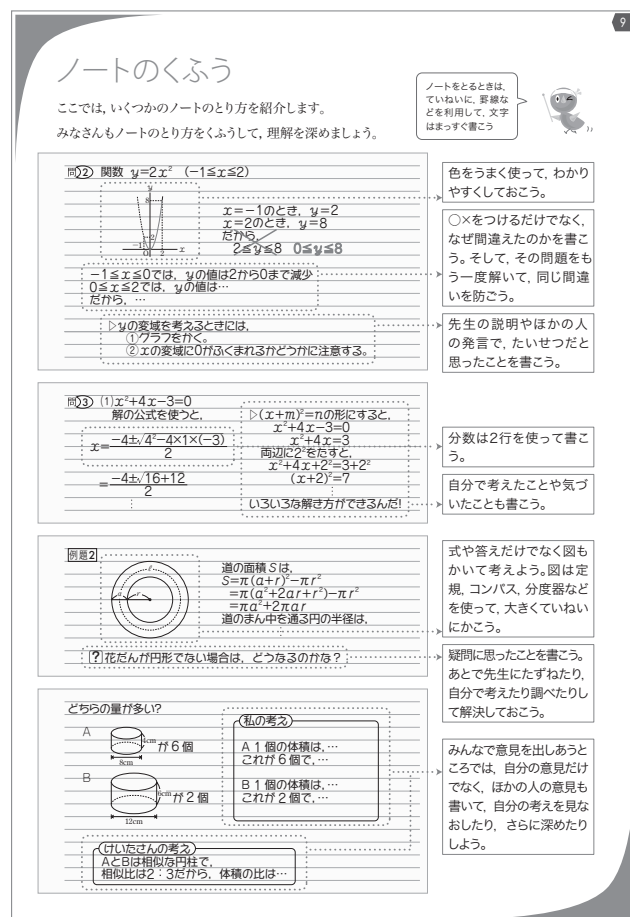 9
ノートのくふう
ここでは,いくつかのノートのとり方を紹介します。
みなさんもノートのとり方をくふうして,理解を深めましょう。
ノートをとるときは,
ていねいに,罫線な
どを利用して,文字
はまっすぐ書こう
問2 関数 y=2x² (−1≦x≦2)
y
8
2
−1
0
2
x
x=−1のとき, y=2
x=2のとき, y=8
だから,
2≦y≦8 0≦y≦8
−1≦x≦0では, yの値は2から0まで減少
0≦x≦2では, yの値は…
だから, …
▷yの変域を考えるときには,
①グラフをかく。
②xの変域に0がふくまれるかどうかに注意する。
色をうまく使って,わかり
やすくしておこう。
○×をつけるだけでなく,
なぜ間違えたのかを書こ
う。そして,その問題をも
う一度解いて,同じ間違
いを防ごう。
先生の説明やほかの人
の発言で,たいせつだと
思ったことを書こう。
問3 (1)x²+4x−3=0
解の公式を使うと,
x=−4±√4²−4×1×(−3)
2
=−4±√16+12
2
⋮
▷(x+m)²=nの形にすると,
x²+4x−3=0
x²+4x=3
両辺に2²をたすと,
x²+4x+2²=3+2²
(x+2)²=7
⋮
いろいろな解き方ができるんだ!
分数は2行を使って書こ
う。
自分で考えたことや気づ
いたことも書こう。
例題2
ℓ
a
r
道の面積Sは,
S=π(a+r)²−πr²
=π(a²+2ar+r²)−πr²
=πa²+2πar
道のまん中を通る円の半径は,
⋮
?花だんが円形でない場合は,どうなるのかな?
式や答えだけでなく図も
かいて考えよう。図は定
規,コンパス,分度器など
を使って,大きくていねい
にかこう。
疑問に思ったことを書こう。
あとで先生にたずねたり,
自分で考えたり調べたりし
て解決しておこう。
どちらの量が多い?
A
4cm
が6個
8cm
B
6cm
が2個
12cm
私の考え
A 1個の体積は,…
これが6個で,…
B 1個の体積は,…
これが2個で,…
けいたさんの考え
AとBは相似な円柱で,
相似比は2:3だから,体積の比は…
みんなで意見を出しあうと
ころでは,自分の意見だけ
でなく,ほかの人の意見も
書いて,自分の考えを見な
おしたり,さらに深めたり
しよう。